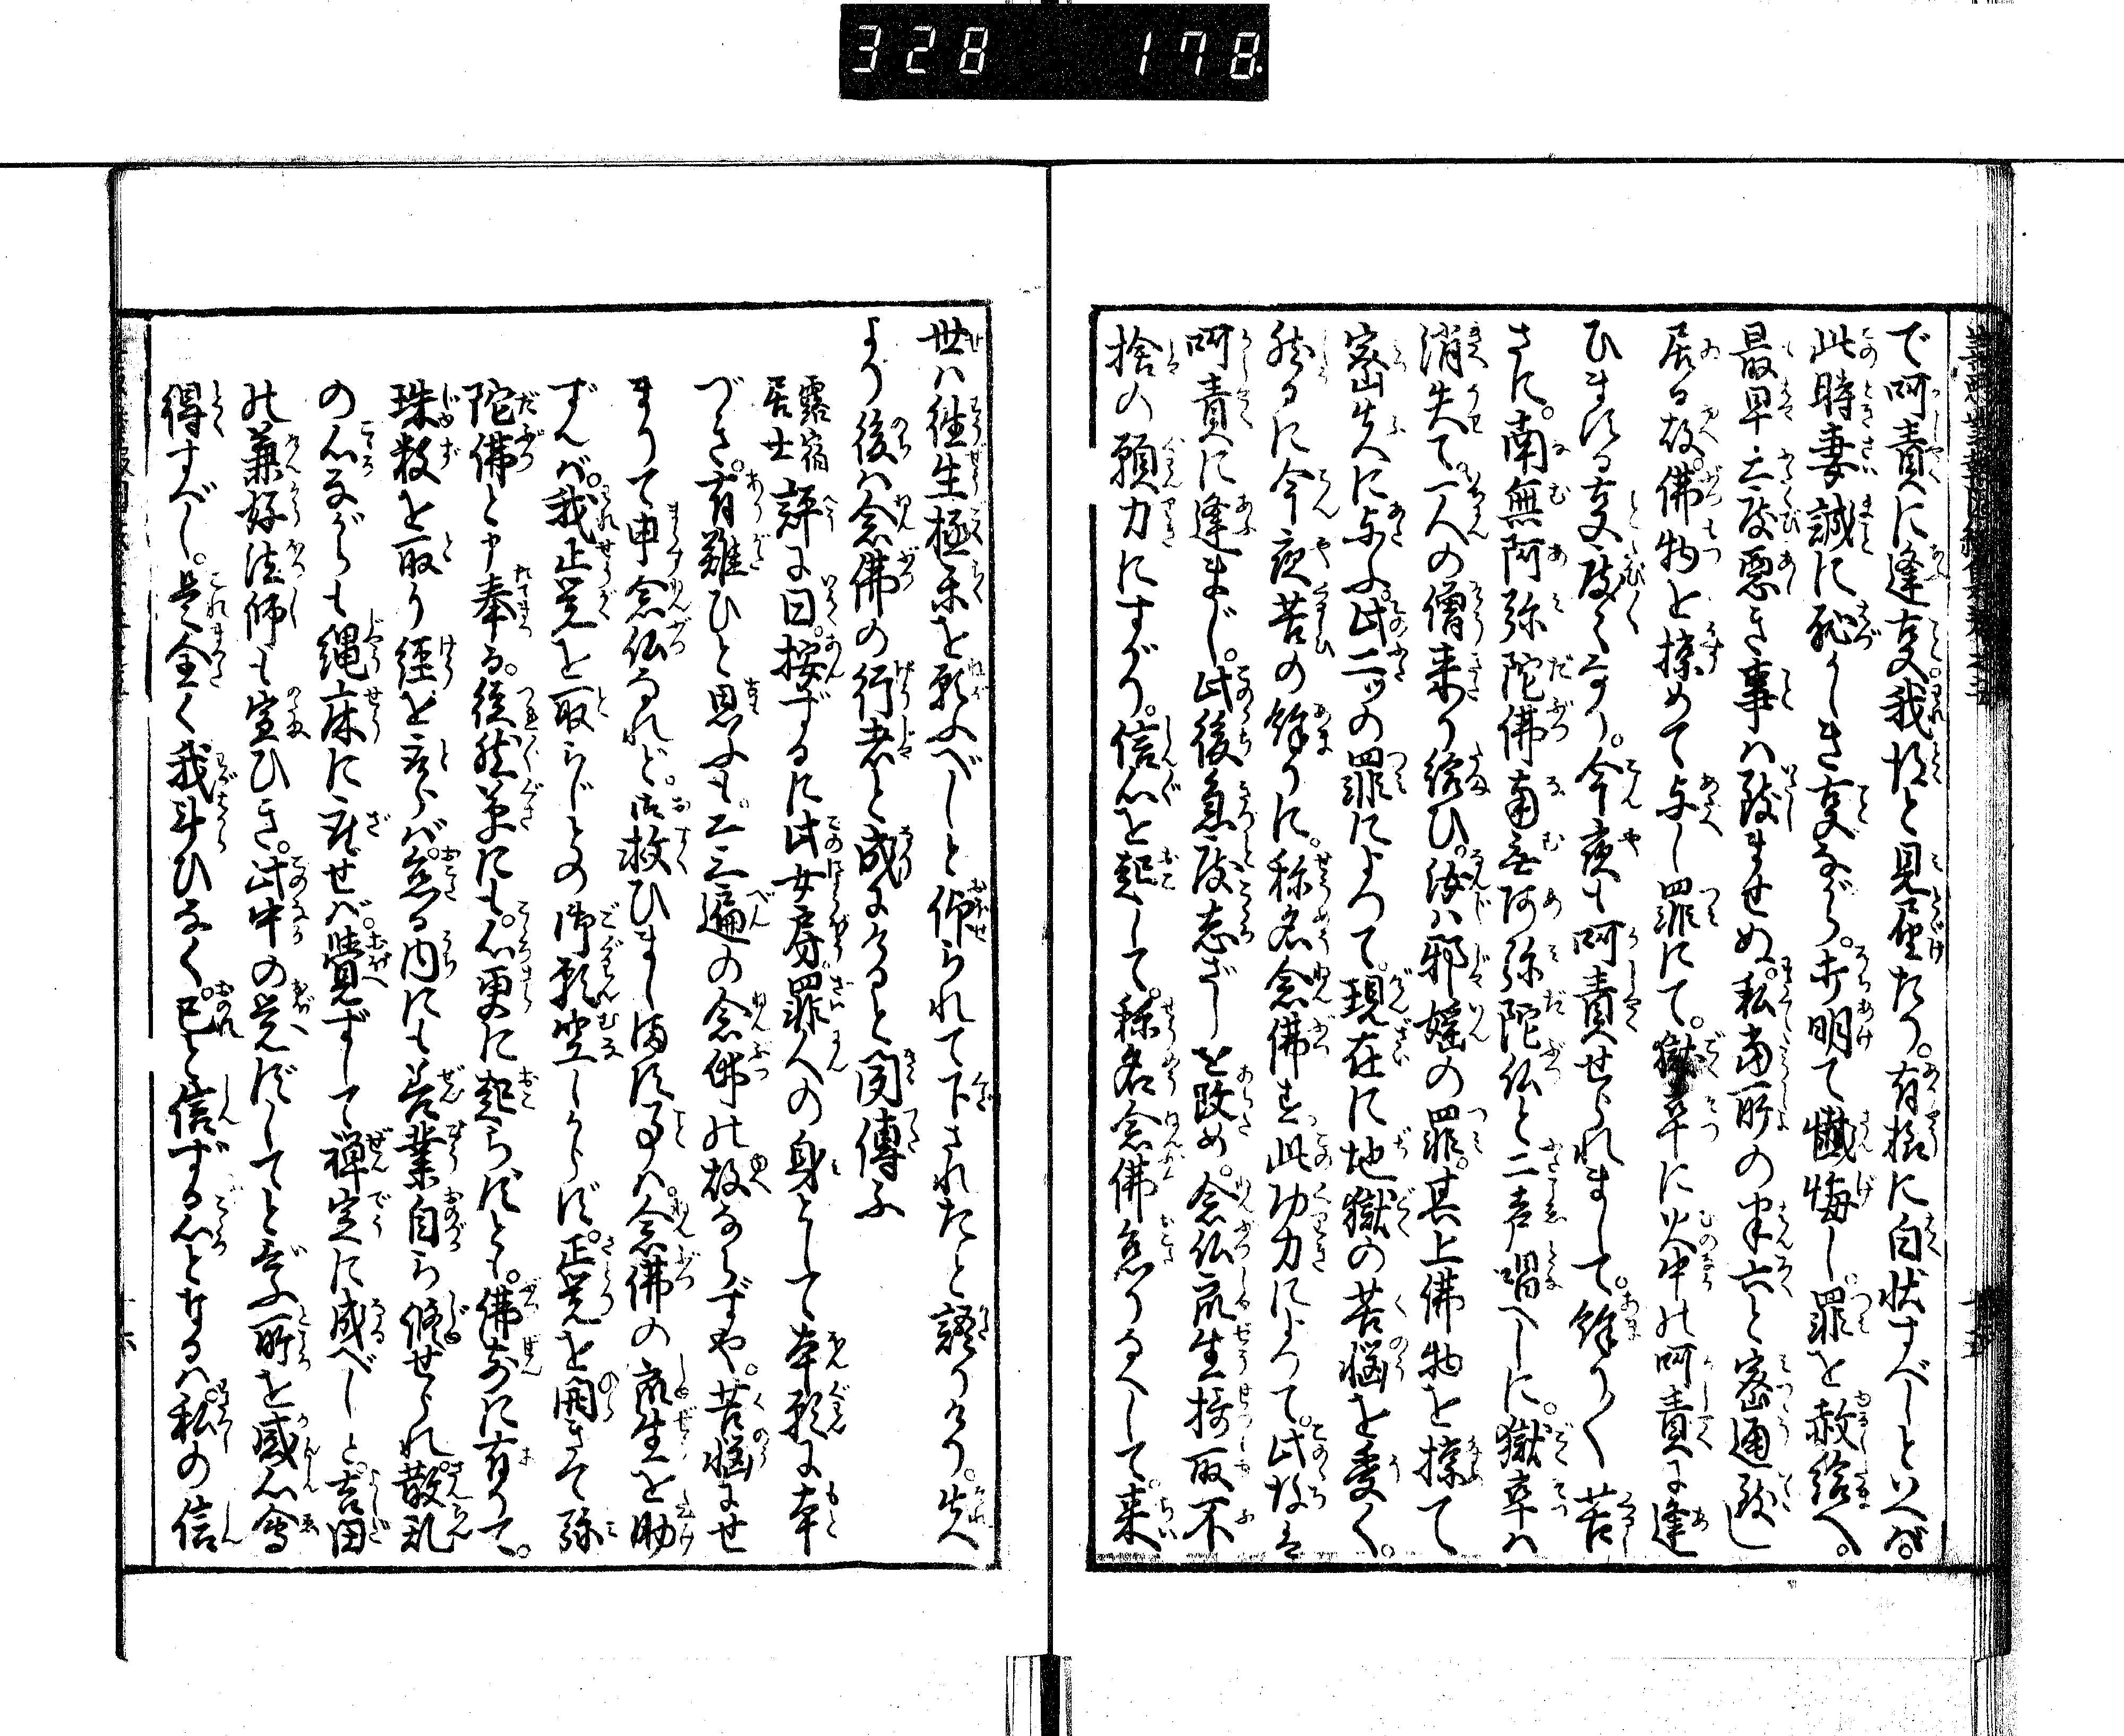 328 178
で呵責に逢事我慥と見届たり。有様に白状すべしといへば。
此時妻誠に恥かしき事ながら。打明て懺悔し。罪を赦給へ。
最早二三度悪き事は致ませぬ。私当所の半六と密通致し
居る故。佛物を掠めて与へし罪にて。獄卒に火中の呵責に逢
ひまする事度々なり。今夜も呵責せられまして。餘り〱苦
さに。南無阿弥陀佛南無阿弥陀仏と二声唱へしに。獄卒は
消失て。一人の僧来り給ひ。汝は邪婬の罪。其上佛物を掠て
密夫に与ふ。此二ツの罪によつて。現在に地獄の苦悩を受く。
然るに今夜苦の餘りに。称名念佛す。此功力によつて。此故は
呵責に逢まじ。此後急度志ざしを改め。念仏衆生摂取不
捨の願力にすがり。信心を起して。称名念佛怠るへして。来
世は往生極楽を願ふべしと仰られて下されたと語りけり。夫
より後は念佛の行者と成にけると聞傳ふ
露宿居士評に曰。按ずるに此女房罪人の身として本願に本
づき。有難ひと思ふも。二三遍の念佛の故ならずや。苦悩にせ
まりて申念仏なれど。御救ひましますことは。念佛の衆生を助
ずんば。我正覚を取らじとの御願空しからず。正覚を開きて弥
陀佛と申奉る。徒然草にも。心更に起らずとも。佛前に有りて。
珠数を取り経を取らば。怠る内にも善業自ら修せられ。散乱
の心ながらも縄床に座せば。覚ずして禅定に成べしと。吉田
の兼好法師も宣ひき。此中の覚ずしてと云ふ所を感心會
得すべし。是全く我斗ひなく。己と信ずる心となるは。私の信